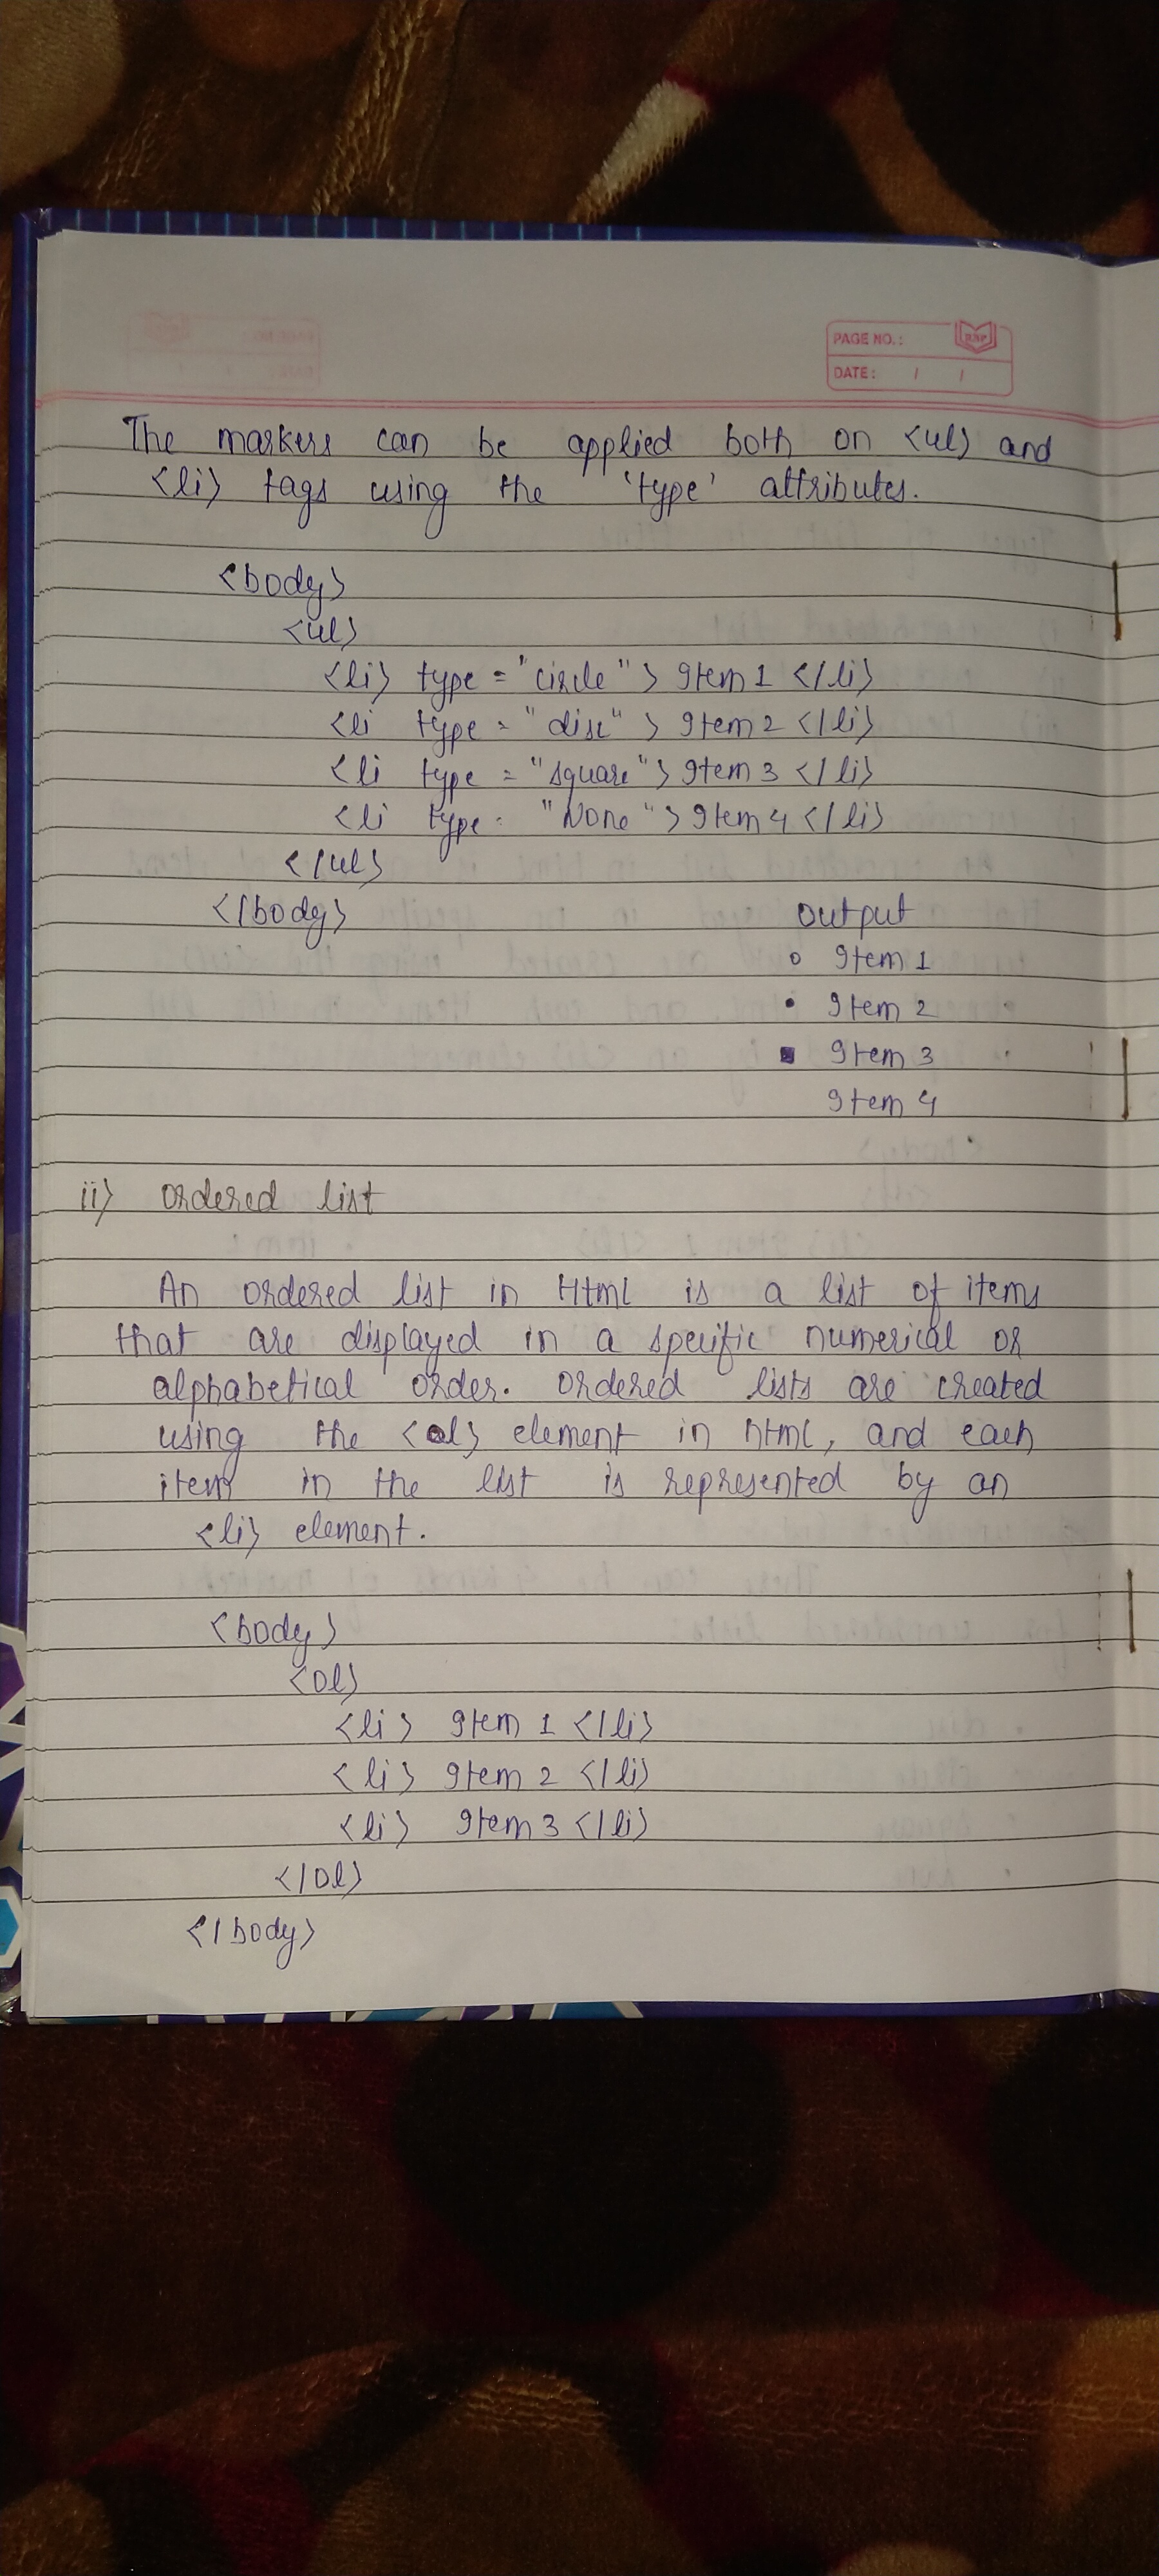 PAGE NO.:
DATE: / /
The markers can be applied both on <ul> and
<li> tags using the 'type' attributes.
<body>
<ul>
<li> type = "circle" > Item 1 </li>
<li type = "disc" > Item 2 </li>
<li type = "square" > Item 3 </li>
<li type = "None" > Item 4 </li>
</ul>
</body>
output
○ Item 1
• Item 2
■ Item 3
Item 4
ii) ordered list
An ordered list in Html is a list of items
that are displayed in a specific numerical or
alphabetical order. ordered lists are created
using the <ol> element in html, and each
item in the list is represented by an
<li> element.
<body>
<Ol>
<li> Item 1 </li>
<li> Item 2 </li>
<li> Item 3 </li>
</Ol>
</body>